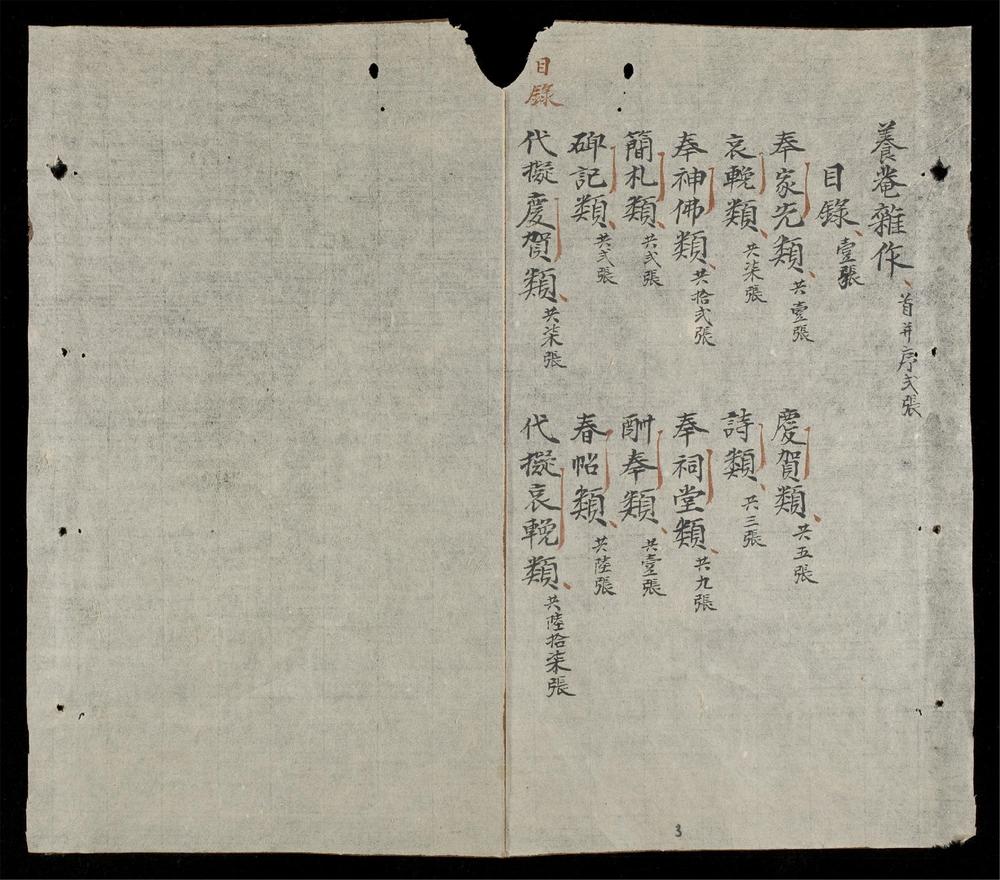 養菴雜作、首并序弍張
目錄、壹張
奉家先類、共壹張
慶賀類、共五張
哀輓類、共柒張
詩類、共三張
奉神佛類、共拾弍張
奉祠堂類、共九張
簡札類、共弍張
酧奉類、共壹張
碑記類、共弍張
春帖類、共陸張
代擬慶賀類、共柒張
代擬哀輓類、共陸拾柒張
目錄
3